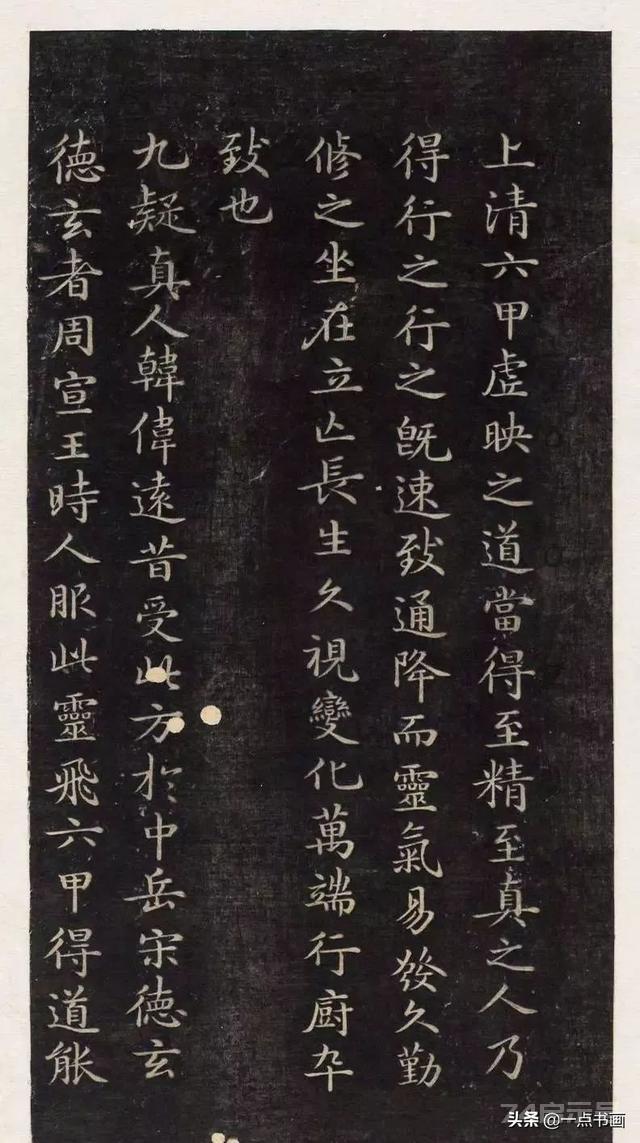 上清六甲虛映之道當得至精至真之人乃
得行之行之既速致通降而靈氣易發久勤
修之坐在立亡長生久視變化萬端行廚卒
致也
九疑真人韓偉遠昔受此方於中岳宋德玄
德玄者周宣王時人服此靈飛六甲得道能
头条 @一点书画